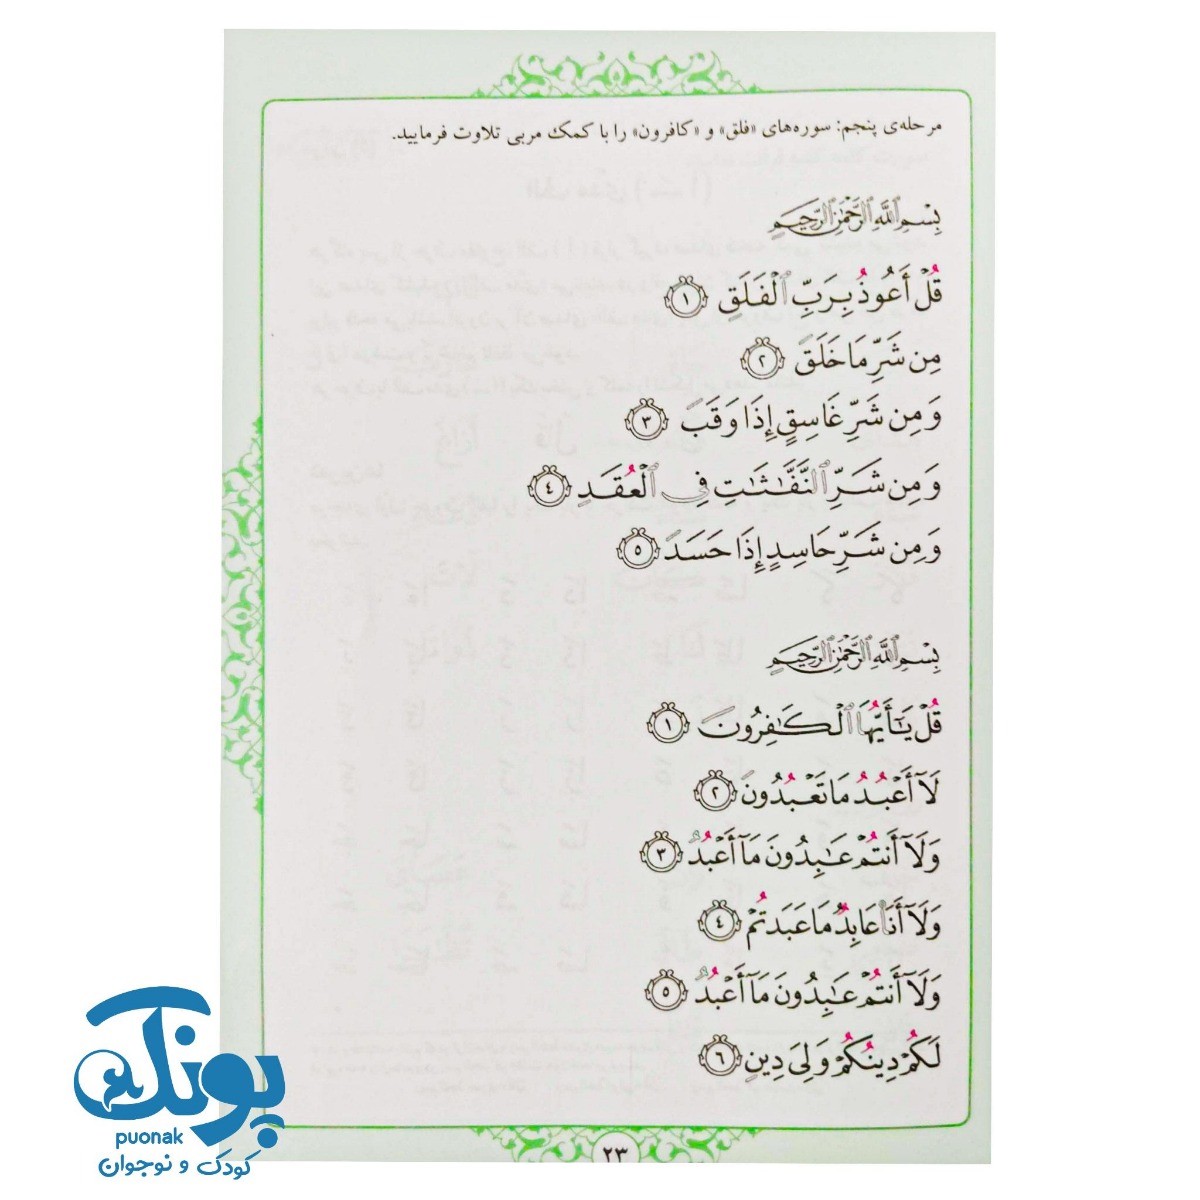 مرحله‌ی پنجم: سوره‌های «فلق» و «کافرون» را با کمک مربی تلاوت فرمایید.
بِسْمِ ٱللَّهِ ٱلرَّحْمَٰنِ ٱلرَّحِيمِ
قُلْ أَعُوذُ بِرَبِّ ٱلْفَلَقِ ١
مِن شَرِّ مَا خَلَقَ ٢
وَمِن شَرِّ غَاسِقٍ إِذَا وَقَبَ ٣
وَمِن شَرِّ ٱلنَّفَّٰثَٰتِ فِى ٱلْعُقَدِ ٤
وَمِن شَرِّ حَاسِدٍ إِذَا حَسَدَ ٥
بِسْمِ ٱللَّهِ ٱلرَّحْمَٰنِ ٱلرَّحِيمِ
قُلْ يَٰٓأَيُّهَا ٱلْكَٰفِرُونَ ١
لَآ أَعْبُدُ مَا تَعْبُدُونَ ٢
وَلَآ أَنتُمْ عَٰبِدُونَ مَآ أَعْبُدُ ٣
وَلَآ أَنَا۠ عَابِدٌ مَا عَبَدتُمْ ٤
وَلَآ أَنتُمْ عَٰبِدُونَ مَآ أَعْبُدُ ٥
لَكُمْ دِينُكُمْ وَلِىَ دِينِ ٦
٢٣
پونک
puonak
کودک و نوجوان